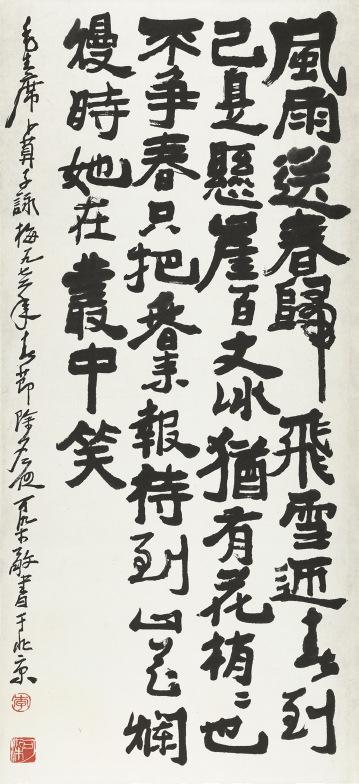 風雨送春歸飛雪迎春到
已是懸崖百丈冰猶有花梢〻也
不爭春只把春來報待到山花爛
熳時她在叢中笑
毛主席卜算子詠梅一九七六年春節除夕夜可染敬書于北京
李
可染